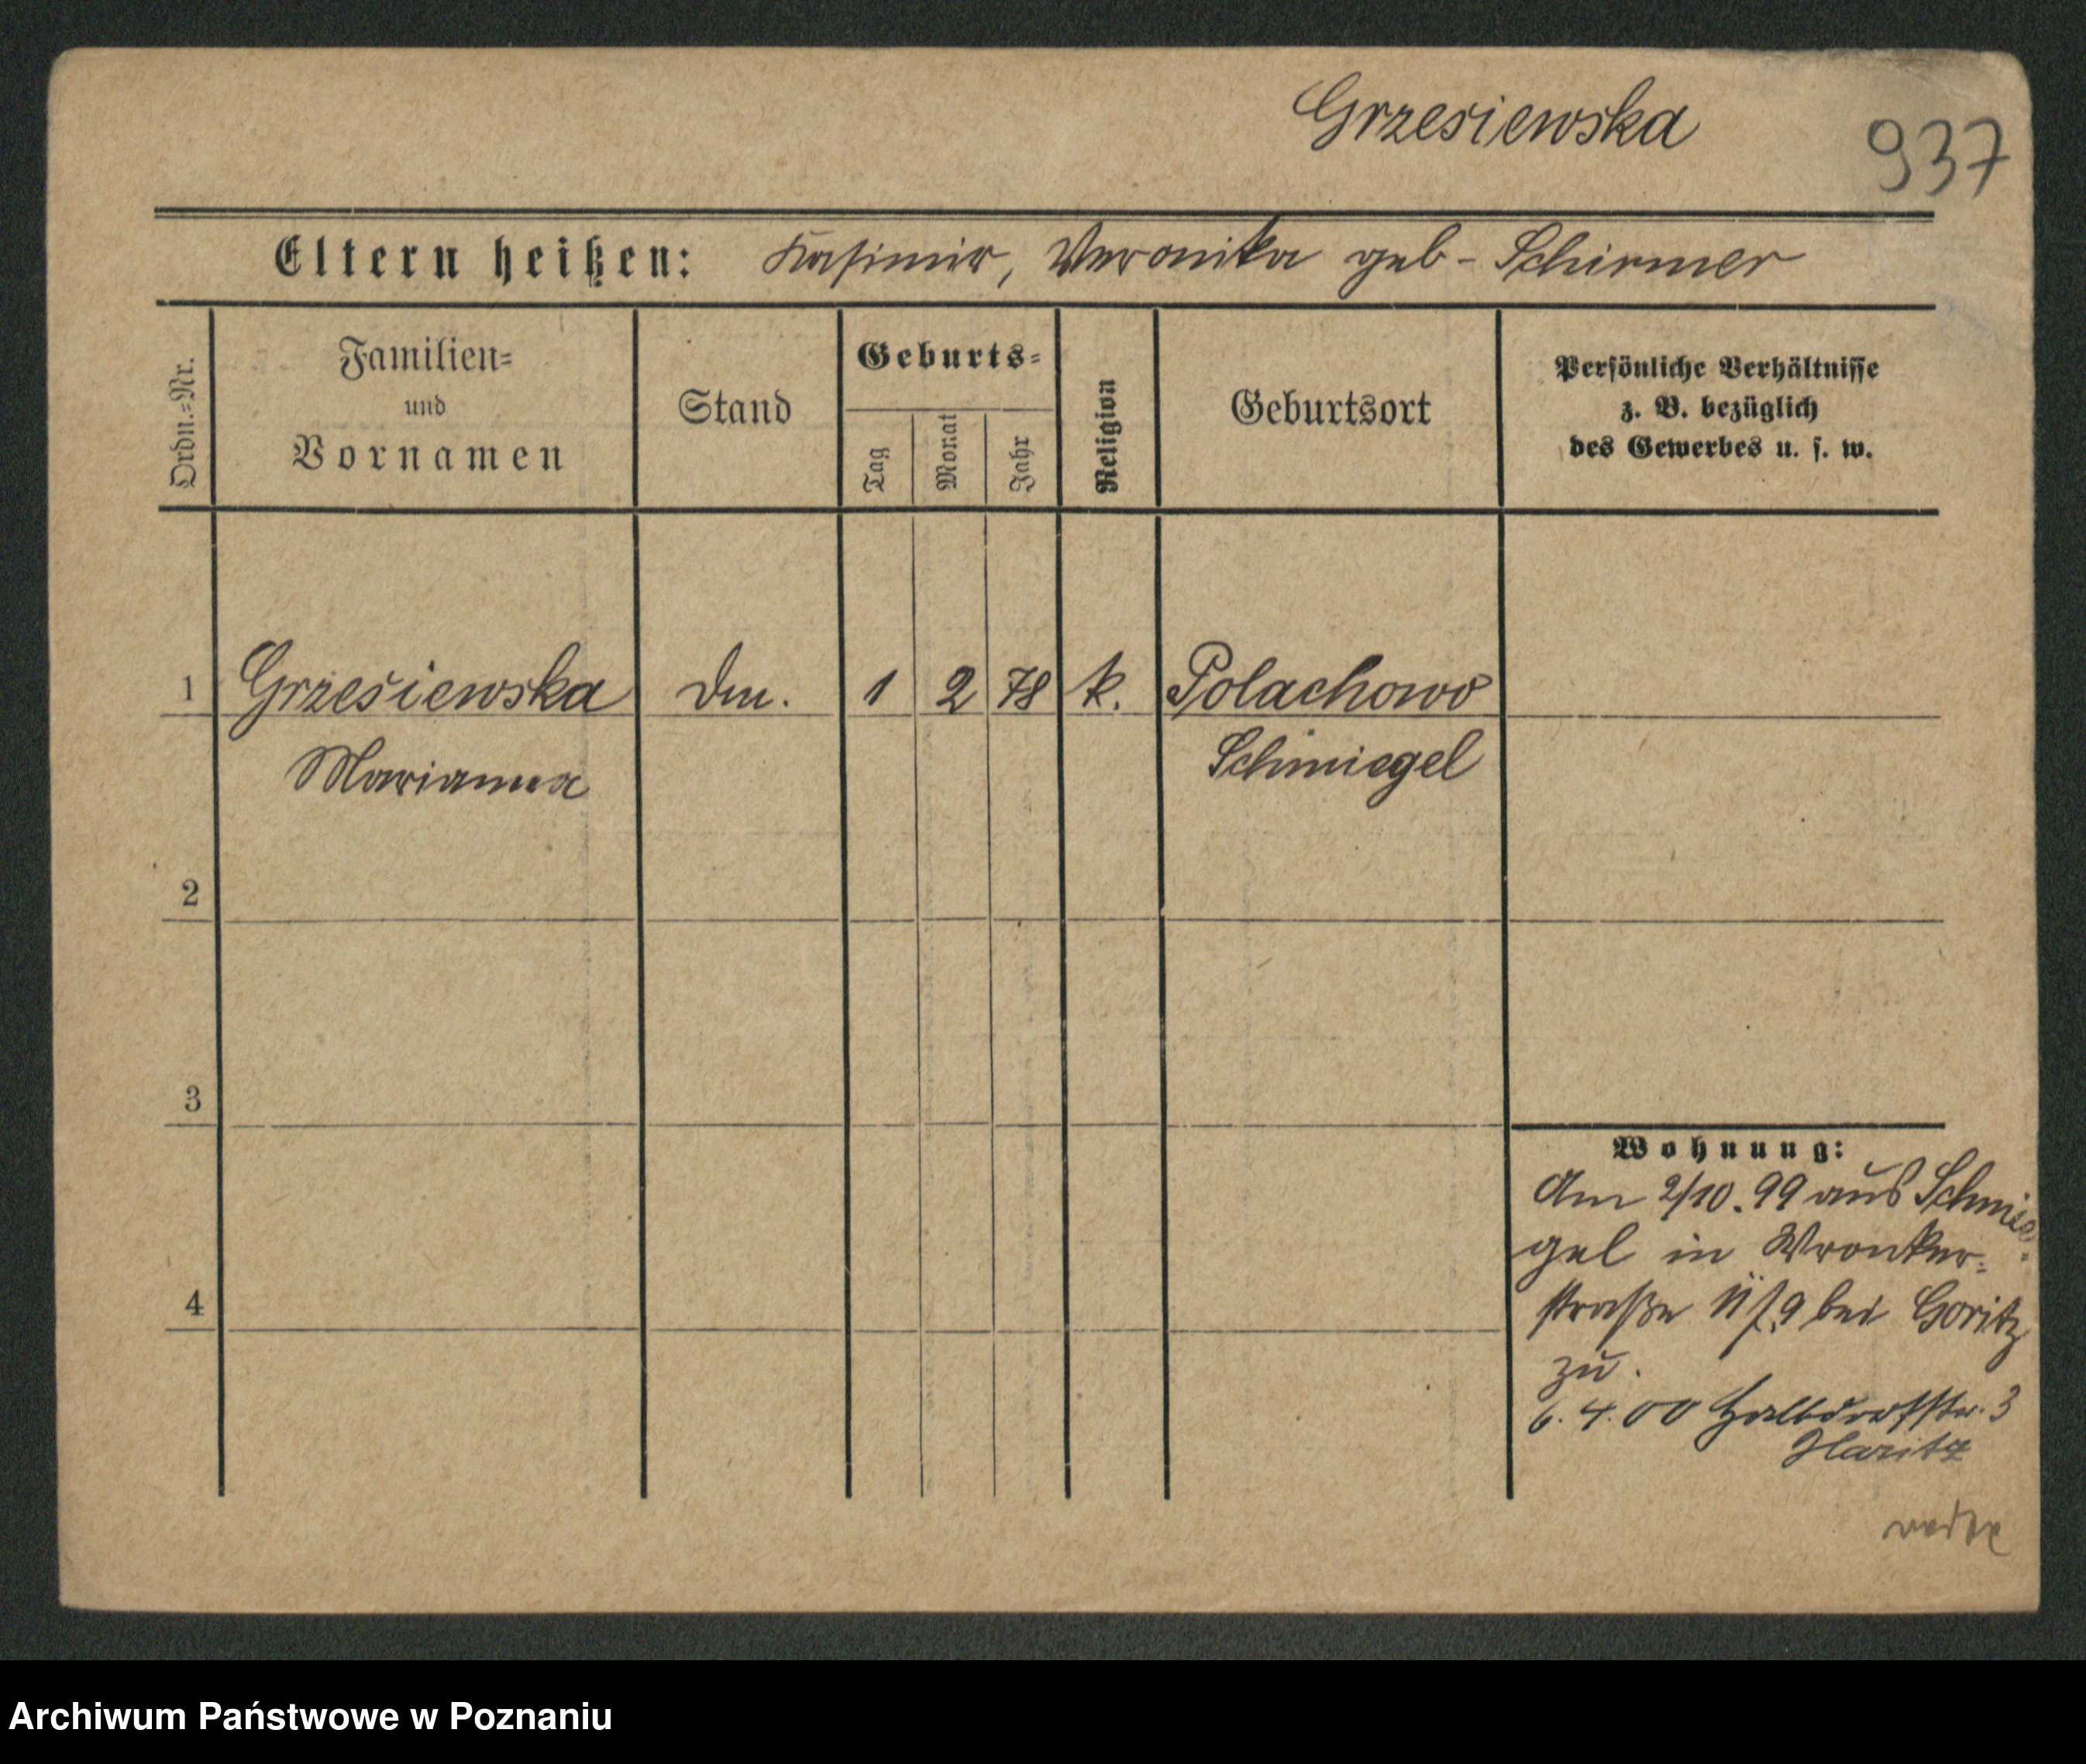 Grzesiewska
937
Eltern heißen: Kasimir, Veronika geb- Schirmer
Ordn.=Nr.
Familien=
und
Vornamen
Stand
Geburts=
Tag
Monat
Jahr
Religion
Geburtsort
Persönliche Verhältnisse
z. B. bezüglich
des Gewerbes u. s. w.
1 Grzesiewska 1 2 78 k. Polachowo
Marianna Schmiegel
2
3
4
Wohnung:
Am 2/10.99 aus Schmie
gel in Wronker=
straße bei Goritz
zu.
6.4.00 Halbdorfstr. 3
Haritz
Archiwum Państwowe w Poznaniu